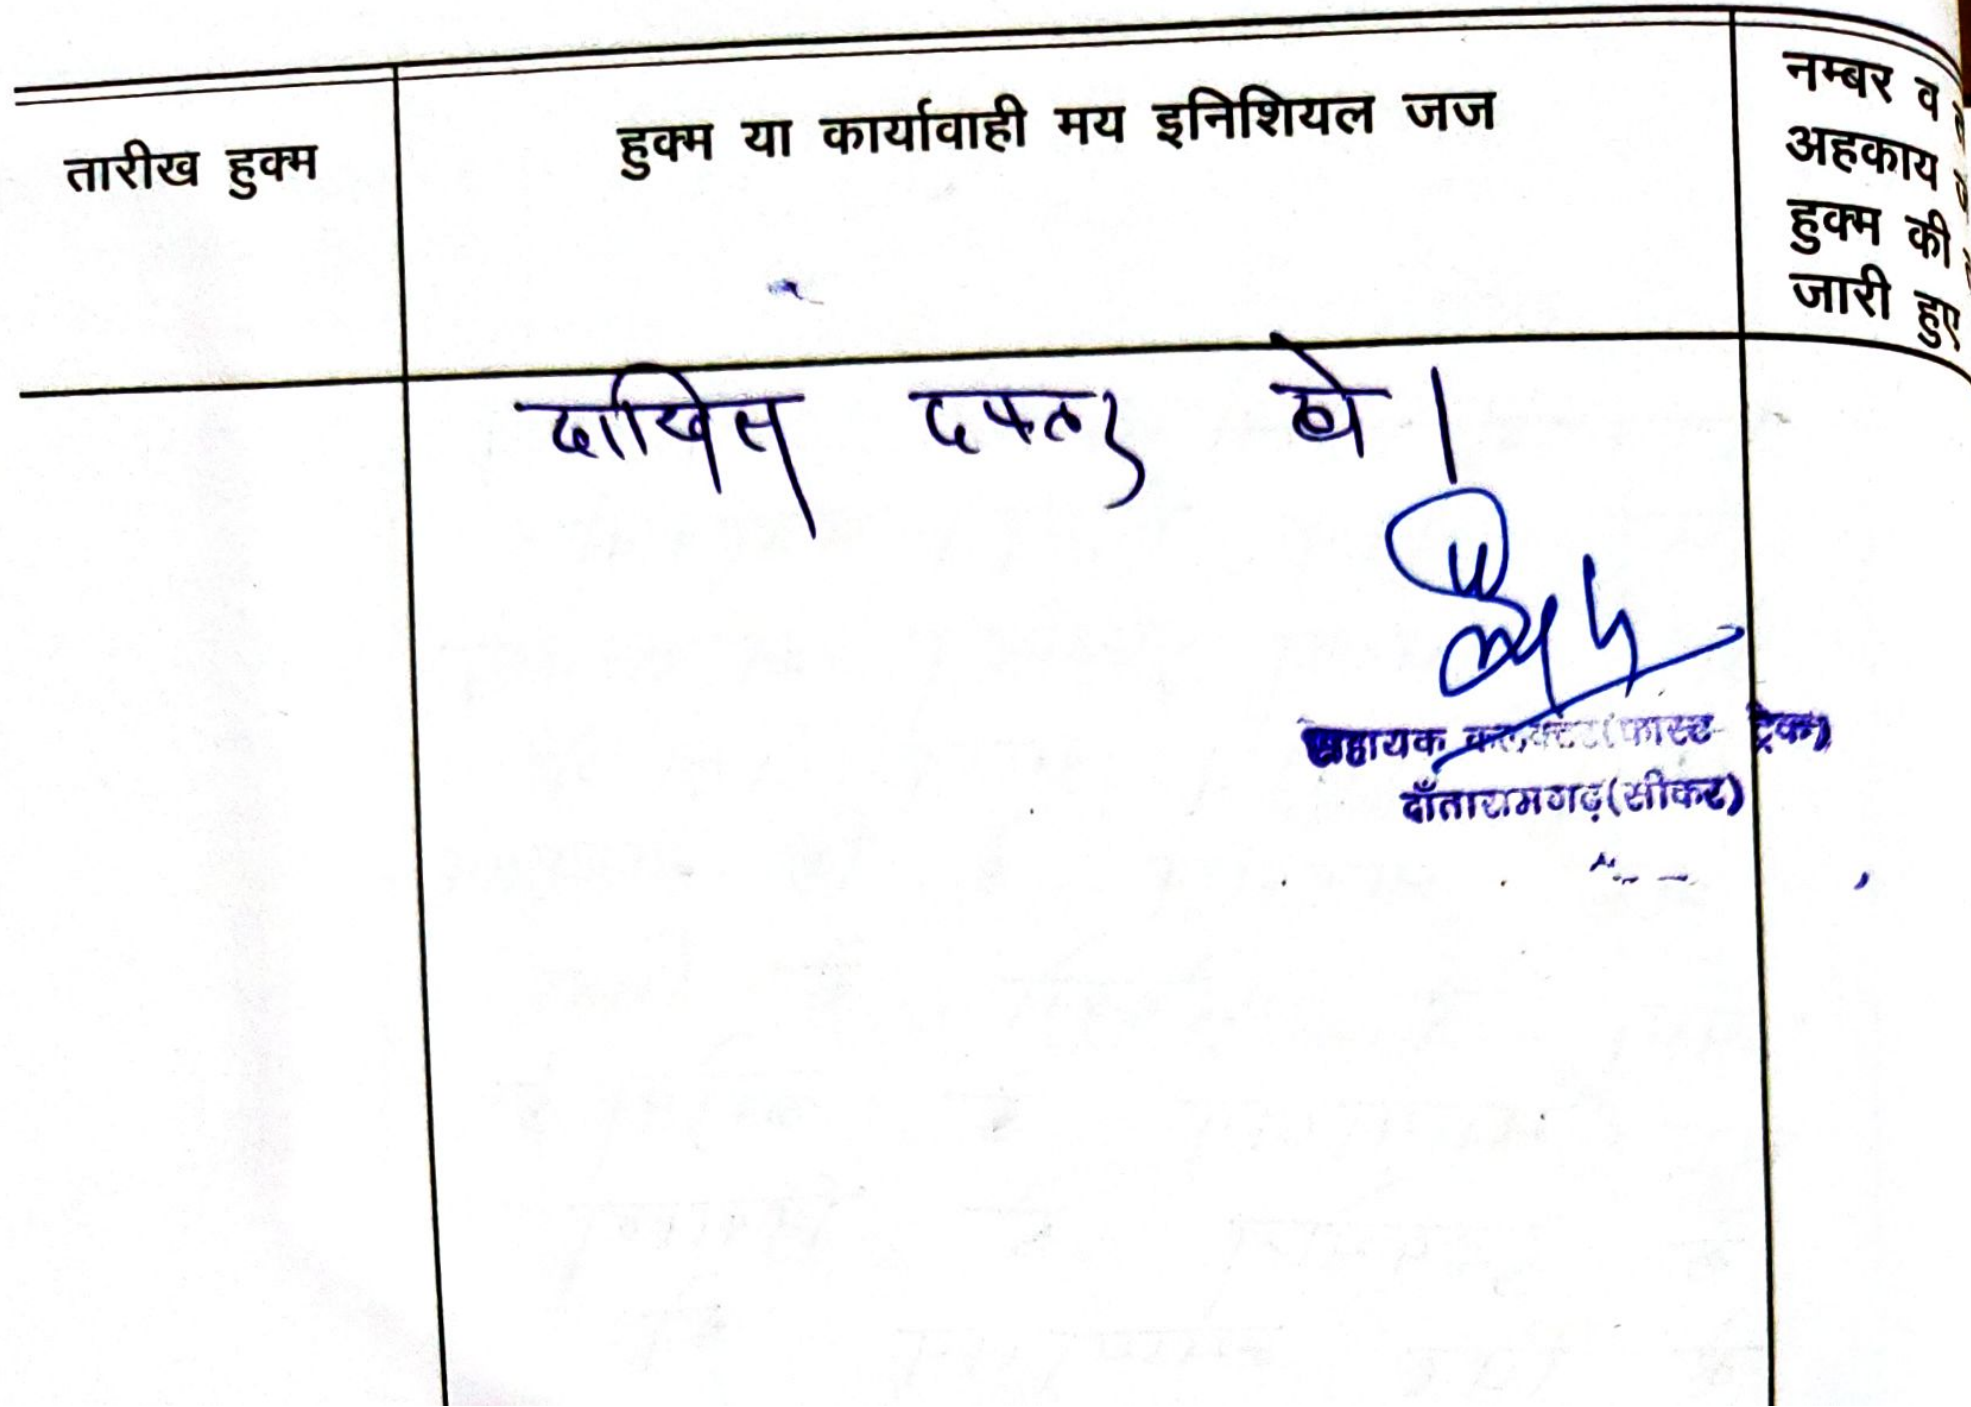 तारीख हुक्म
हुक्म या कार्यावाही मय इनिशियल जज
नम्बर व
अहकाय
हुक्म की
जारी हुए
दाखिल दफ्तर हो।
सहायक कलक्टर(फास्ट ट्रेक)
दाँतारामगढ़(सीकर)